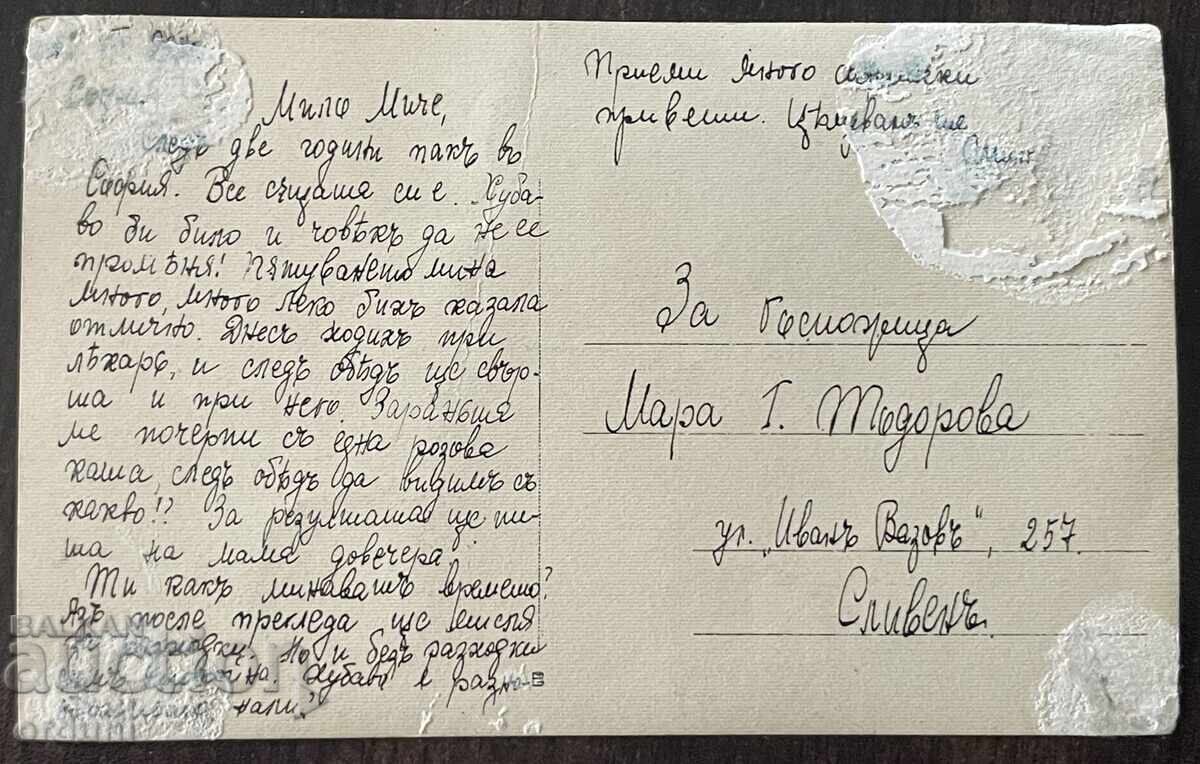 София.
Мило Миче,
Следъ две години пакъ въ
София. Все същата си е. Хуба-
во би било и човѣкъ да не се
промѣня! Пѫтуването мина
много, много леко бихъ казала
отлично. Днесъ ходихъ при
лѣкаре, и следъ обѣдъ ще свър-
ша и при него. Зараньта
ме почерпи съ една розова
каша, следъ обѣдъ да видимъ съ
какво!? За резултата ще пи-
ша на мама довечера.
Ти какъ минавашъ времето?
Азъ после прегледа ще мисля
за разходки. Но и безъ разходки
съмъ Хубаво е разно-
нали?
Приеми много
привети. Цѣлувамъ те
За Госпожица
Мара Г. Тодорова
ул. „Иванъ Вазовъ", 257.
Сливенъ.
BALKAN
auction
orduni